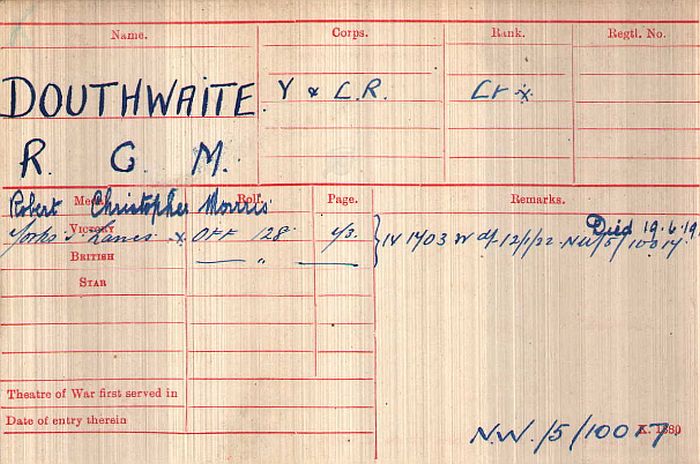 Name. Corps. Rank. Regtl. No.
DOUTHWAITE. Y & L.R. Lt x
R. C. M.
Robert Christopher Morris
Medal Roll. Page. Remarks.
Died 19.6.19
VICTORY Yorks & Lancs x OFF 128 43. IV 1703 W df 12/1/22 NW/5/10017.
BRITISH — " —
STAR
Theatre of War first served in
Date of entry therein
N.W./5/10017. K. 1380